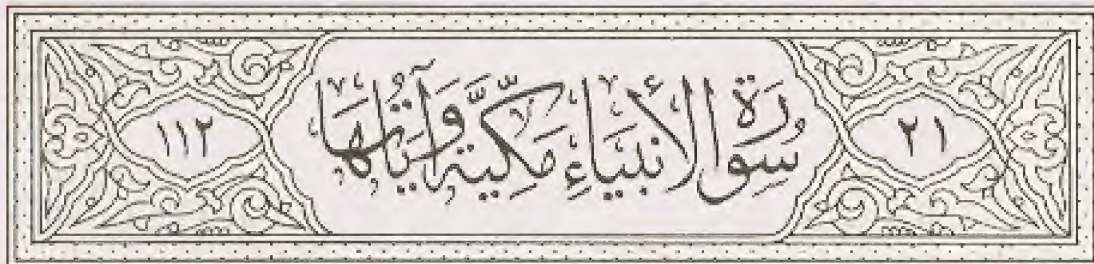 ٢١
سُورَةُ الأَنبيَاءِ مَكِّيَّة وَآيَاتُهَا
١١٢